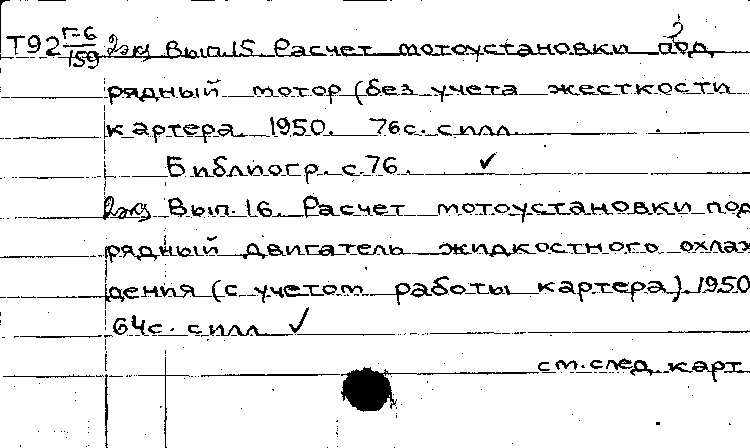 2
Т92 Г-6/159 2экз Вып.15. Расчет мотоустановки под
рядный мотор (без учета жесткости
картера. 1950. 76с. силл.
Библиогр. с.76. ✓
2экз Вып.16. Расчет мотоустановки под
рядный двигатель жидкостного охлаж
дения (с учетом работы картера). 1950
64с. силл. ✓
см.след. карт